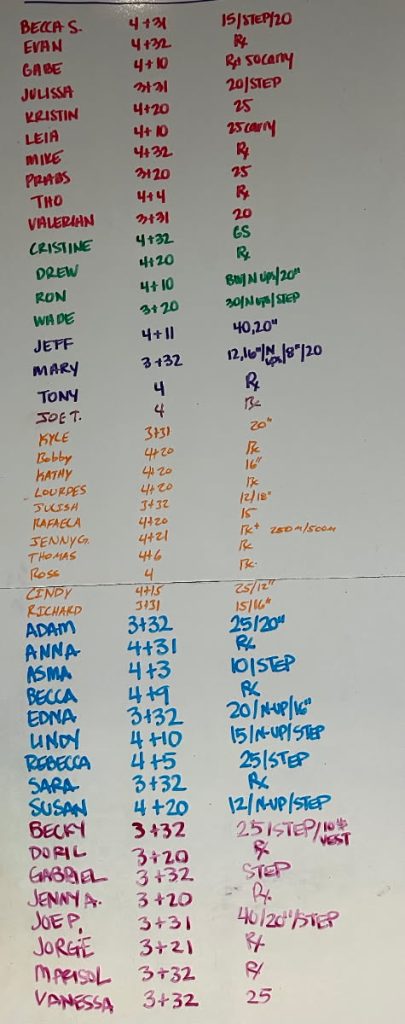 BECCA S. 4+31 15/STEP/20
EVAN 4+32 Rx
GABE 4+10 Rx+ 50 carry
JULISSA 3+31 20/STEP
KRISTIN 4+20 25
LEIA 4+10 25 carry
MIKE 4+32 Rx
PRABS 3+20 25
THO 4+4 Rx
VALERIAN 3+31 20
CRISTINE 4+32 65
DREW 4+20 Rx
RON 4+10 /N UPS/20"
WADE 3+20 30/N UPS/STEP
JEFF 4+11 40, 20"
MARY 3+32 12,16"/N UPS/8"/20
TONY 4 Rx
JOE T. 4 Rx
KYLE 3+31 20"
Bobby 4+20 Rx
KATHY 4+20 16"
LOURDES 4+20 Rx
3+32 12/18"
RAFAELA 4+20 15
JENNY G. 4+21 Rx+ 250m/500m
THOMAS 4+6 Rx
ROSS 4 Rx
CINDY 4+15 25/12"
RICHARD 3+31 15/16"
ADAM 3+32 25/20"
ANNA 4+31 Rx
ASMA 4+3 10/STEP
BECCA 4+9 Rx
EDNA 3+32 20/N-UP/16"
LINDY 4+10 15/N-UP/STEP
REBECCA 4+5 25/STEP
SARA 3+32 Rx
SUSAN 4+20 12/N-UP/STEP
BECKY 3+32 25/STEP/10# VEST
DORIL 3+20 Rx
GABRIEL 3+32 STEP
JENNY A. 3+20 Rx
JOE P. 3+31 40/20"/STEP
JORGE 3+21 Rx
MARISOL 3+32 Rx
VANESSA 3+32 25